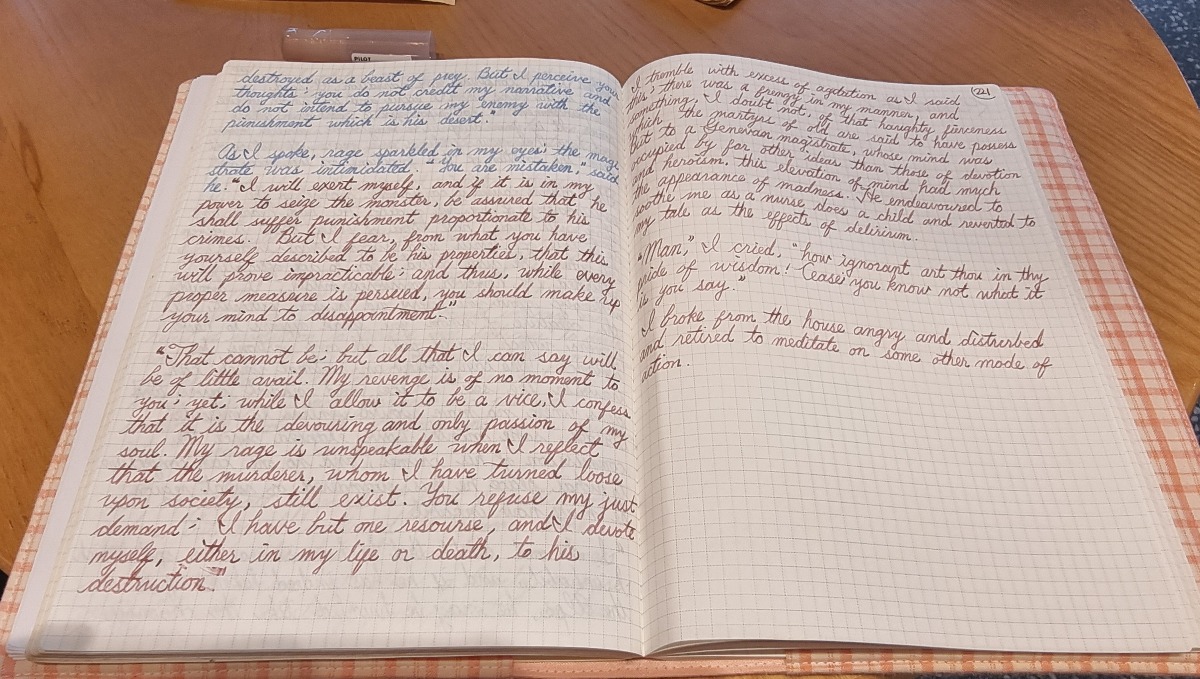 PILOT
destroyed as a beast of prey. But I perceive your
thoughts; you do not credit my narrative and
do not intend to pursue my enemy with the
punishment which is his desert."
As I spoke, rage sparkled in my eyes; the magi-
strate was intimidated. "You are mistaken," said
he. "I will exert myself, and if it is in my
power to seize the monster, be assured that he
shall suffer punishment proportionate to his
crimes. But I fear, from what you have
yourself described to be his properties, that this
will prove impracticable; and thus, while every
proper measure is persued, you should make up
your mind to disappointment."
"That cannot be; but all that I can say will
be of little avail. My revenge is of no moment to
you; yet; while I allow it to be a vice, I confess
that it is the devouring and only passion of my
soul. My rage is unspeakable when I reflect
that the murderer, whom I have turned loose
upon society, still exist. You refuse my just
demand; I have but one resourse, and I devote
myself, either in my life or death, to his
destruction."
221
I tremble with excess of agitation as I said
this; there was a frenzy in my manner, and
something, I doubt not, of that haughty fierceness
which the martyrs of old are said to have possess
But to a Genevan magistrate, whose mind was
occupied by far other ideas than those of devotion
and heroism, this elevation of mind had much
the appearance of madness. He endeavoured to
soothe me as a nurse does a child and reverted to
my tale as the effects of delirium.
"Man," I cried, "how ignorant art thou in thy
pride of wisdom! Cease; you know not what it
is you say."
I broke from the house angry and disturbed
and retired to meditate on some other mode of
action.